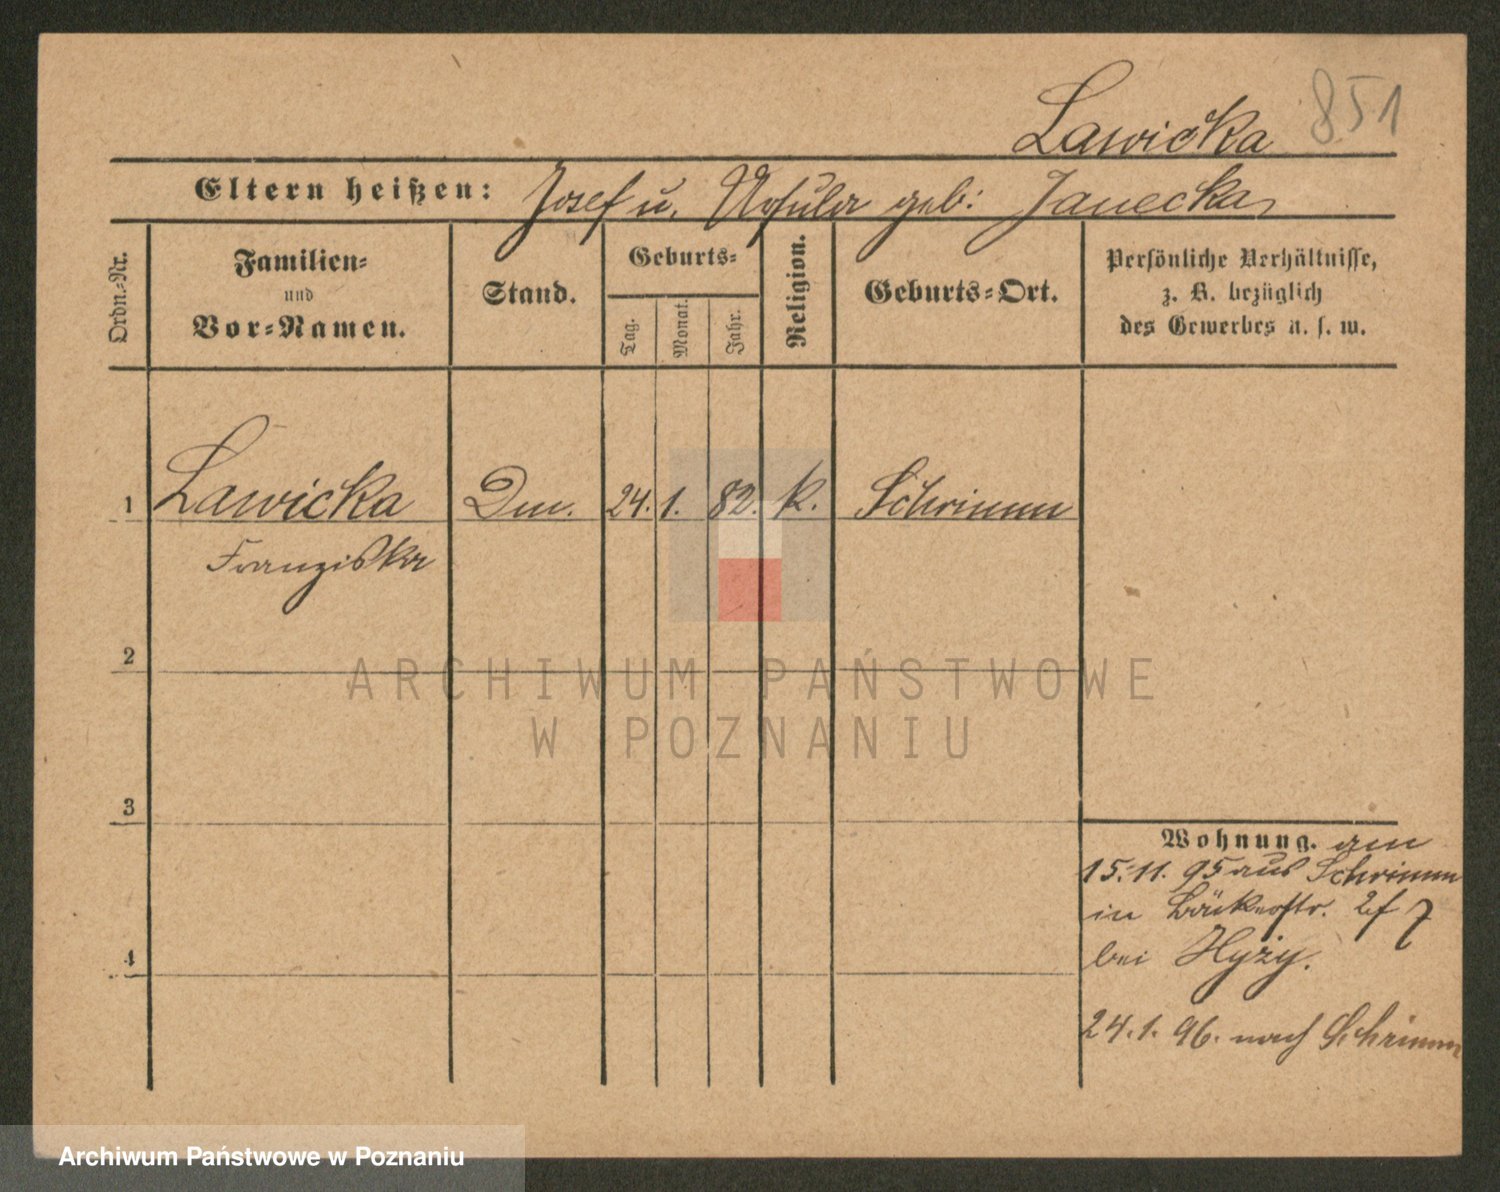 Lawicka 851
Eltern heißen: Josef u. Ursula geb: Janecka
Ordn.-Nr.
Familien-
und
Vor-Namen.
Stand.
Geburts-
Tag.
Monat.
Jahr.
Religion.
Geburts-Ort.
Persönliche Verhältnisse,
z. B. bezüglich
des Gewerbes u. s. w.
1 Lawicka 24. 1. 82. k. Schrimm
Franziska
2
3
4
Wohnung. am
15.11.95 aus Schrimm
in Bäckerstr. 7
bei Hyzy.
24.1.96. nach Schrimm
ARCHIWUM PAŃSTWOWE
W POZNANIU
Archiwum Państwowe w Poznaniu